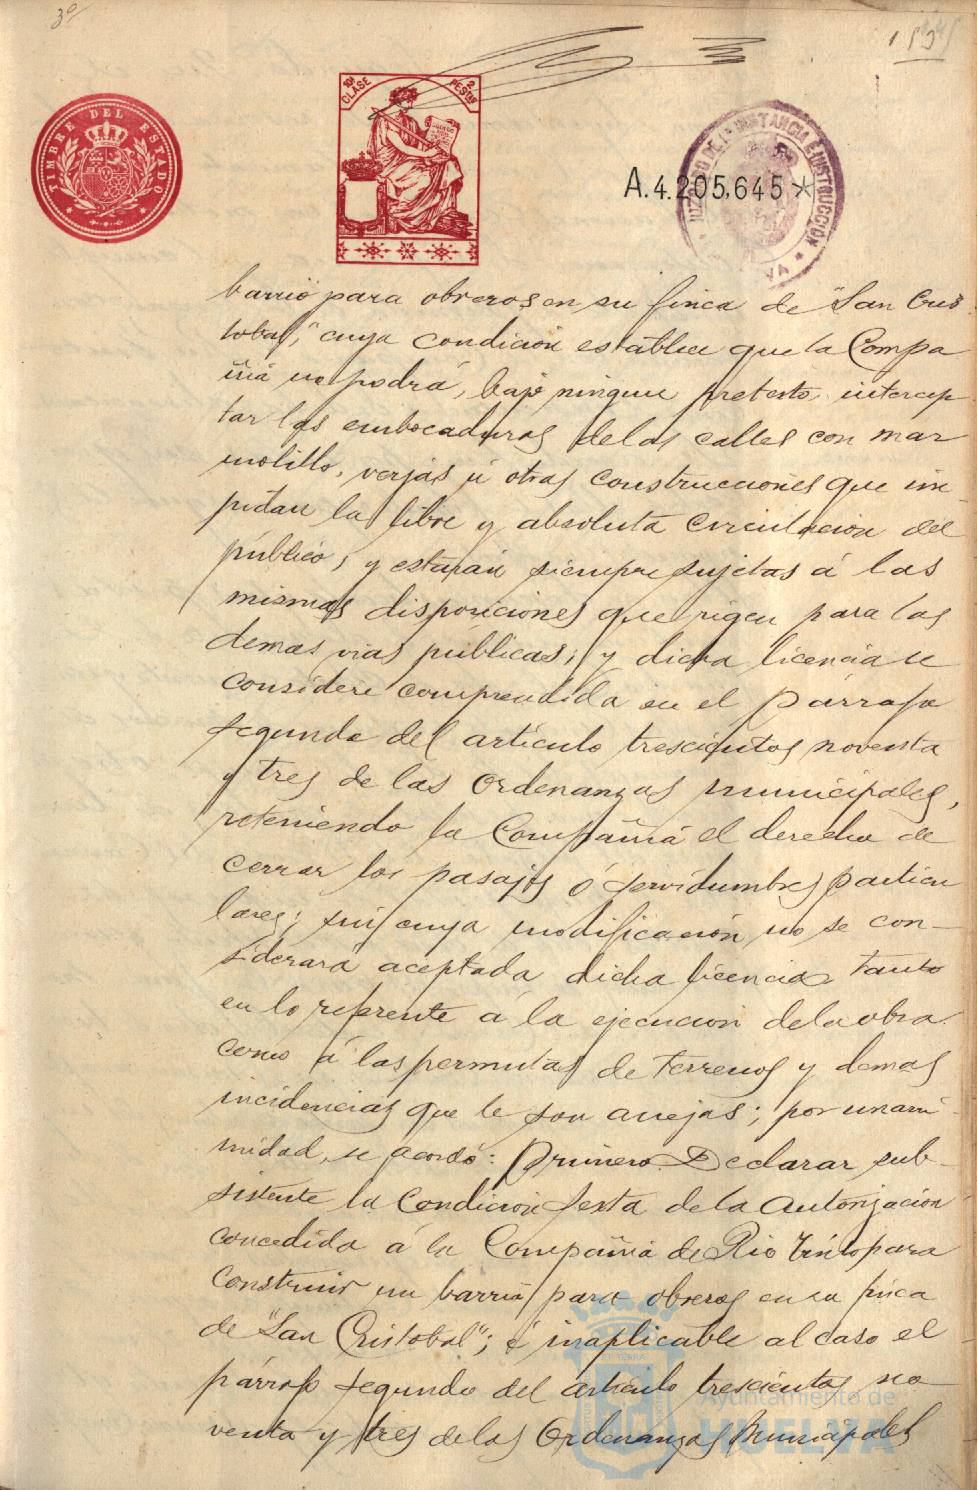 3º
153
TIMBRE DEL ESTADO
10ª CLASE
2 PESETAS
JUZGADO DE 1ª INSTANCIA E INSTRUCCIÓN
A.4.205,645*
barrio para obreros en su finca de "San Cris
tobal," cuya condición establece que la Compa
ñia no podrá, bajo ningun pretesto, intercep
tar las embocaduras de las calles con mar
molillo, verjas ú otras construcciones que im
pidan la libre y absoluta circulación del
público, y estarán siempre sujetas á las
mismas disposiciones que rigen para las
demas vias publicas; y dicha licencia se
considere comprendida en el párrafo
segundo del artículo trescientos noventa
y tres de las Ordenanzas municipales,
reteniendo la Compañia el derecho de
cerrar los pasajes ó servidumbres particu
lares; sin cuya modificación no se con-
siderará aceptada dicha licencia tanto
en lo referente á la ejecucion de la obra
como á las permutas de terrenos y demas
incidencias que le son anejas; por unani
midad, se acordó: Primero. Declarar sub-
sistente la Condicion sexta de la autorizacion
concedida á la Compañia de Rio Tinto para
construir un barrio para obreros en su finca
de "San Cristobal"; é inaplicable al caso el
párrafo segundo del artículo trescientos no-
venta y tres de las Ordenanzas Municipales
Ayuntamiento de
HUELVA